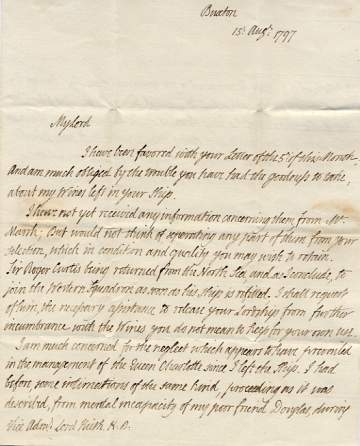 Buxton
15th Augt 1797
My Lord
I have been favored with your Letter of the 5th of this Month,
And am much obliged by the trouble you have had the goodness to take,
about my Wines left in your Ship.
I have not yet received any information concerning them from Mr
But would not think of separating any part of them from your
selection, which in condition and quality you may wish to retain.
Sir Roger Curtis being returned from the North Sea and as I conclude, to
join the Western Squadron as soon as his Ship is refitted. I shall request
of him, the necessary assistance to release your Lordship from further
incumbrance with the Wines you do not mean to keep for your own use.
I am much concerned for the neglect which appears to have prevailed
in the management of the Queen Charlotte since I left the Ship. I had
before some intimations of the same kind, proceeding as it was
described, from mental incapacity of my poor friend Douglas, during
Vice Adml Lord Keith K.B.